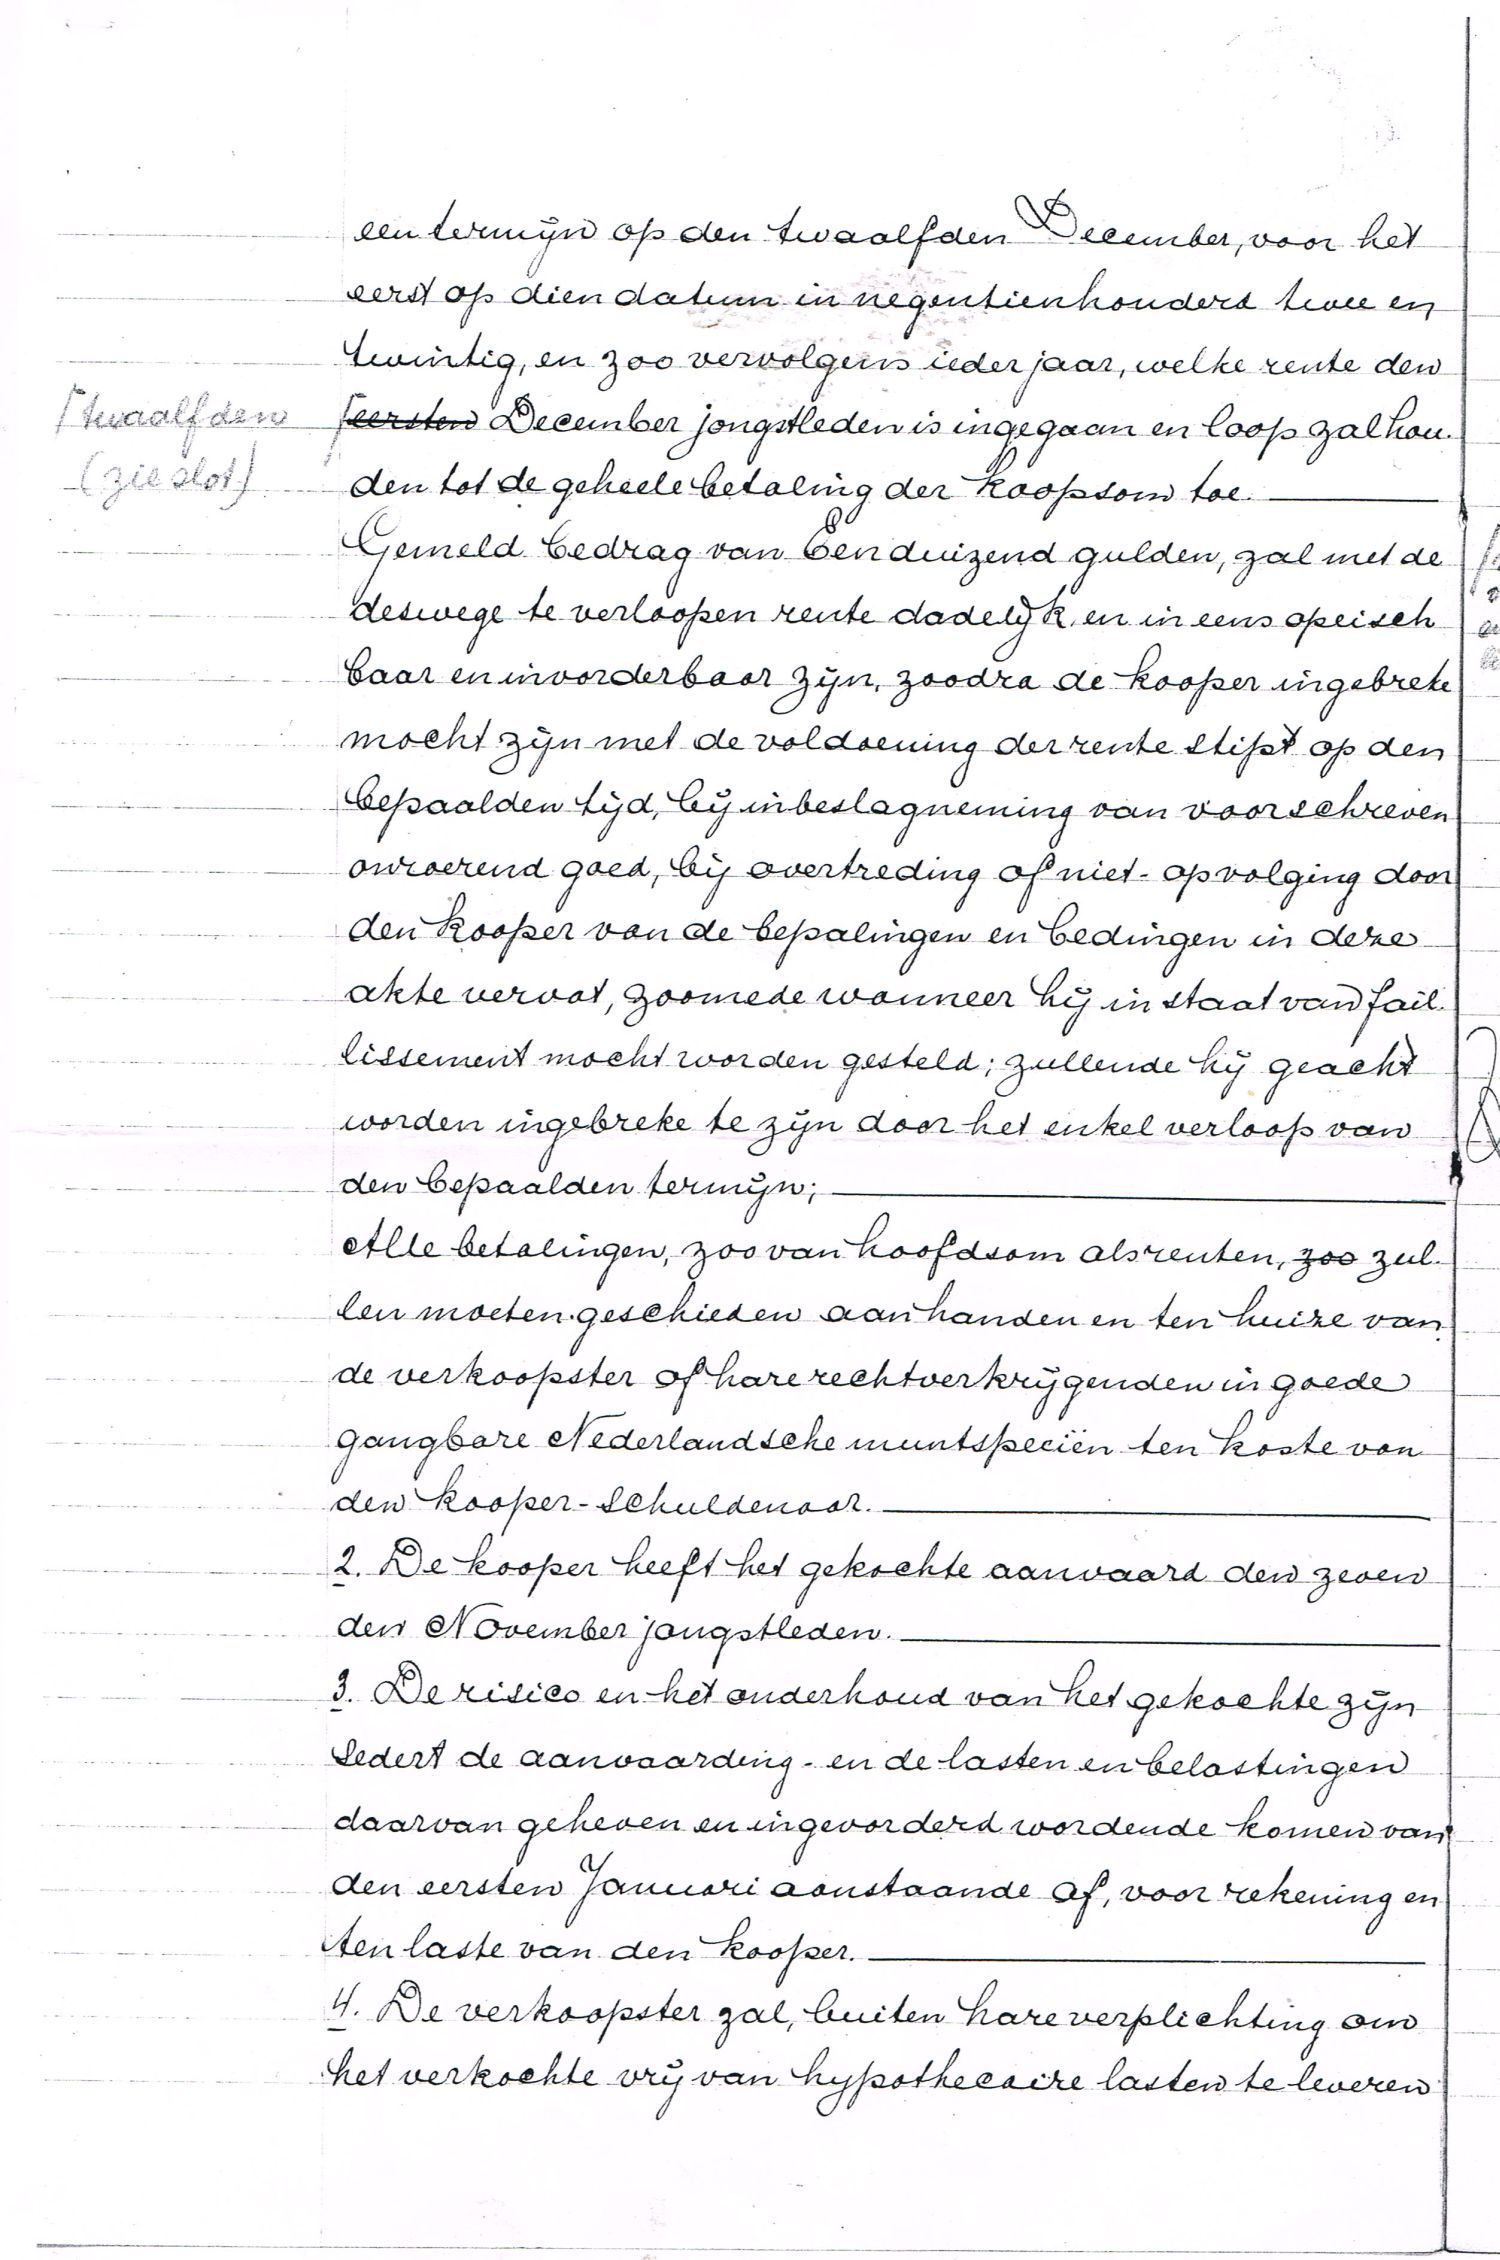 een termijn op den twaalfden December, voor het
eerst op dien datum in negentienhonderd twee en
twintig, en zoo vervolgens ieder jaar, welke rente den
⌈twaalfden
⌈eersten December jongstleden is ingegaan en loop zal hou-
(zie slot)
den tot de geheele betaling der koopsom toe.
Gemeld bedrag van Eenduizend gulden, zal met de
deswege te verloopen rente dadelijk en in eens opeisch
baar en invorderbaar zijn, zoodra de kooper ingebreke
mocht zijn met de voldoening der rente stipt op den
bepaalden tijd, bij inbeslagneming van voorschreven
onroerend goed, bij overtreding of niet-opvolging door
den kooper van de bepalingen en bedingen in deze
akte vervat, zoomede wanneer hij in staat van fail-
lissement mocht worden gesteld; zullende hij geacht
worden ingebreke te zijn door het enkel verloop van
den bepaalden termijn;
Alle betalingen, zoo van hoofdsom als renten, zoo zul-
len moeten geschieden aan handen en ten huize van
de verkoopster of hare rechtverkrijgenden in goede
gangbare Nederlandsche muntspeciën ten koste van
den kooper-schuldenaar.
2. De kooper heeft het gekochte aanvaard den zeven
den November jongstleden.
3. De risico en het onderhoud van het gekochte zijn
sedert de aanvaarding - en de lasten en belastingen
daarvan geheven en ingevorderd wordende komen van
den eersten Januari aanstaande af, voor rekening en
ten laste van den kooper.
4. De verkoopster zal, buiten hare verplichting om
het verkochte vrij van hypothecaire lasten te leveren